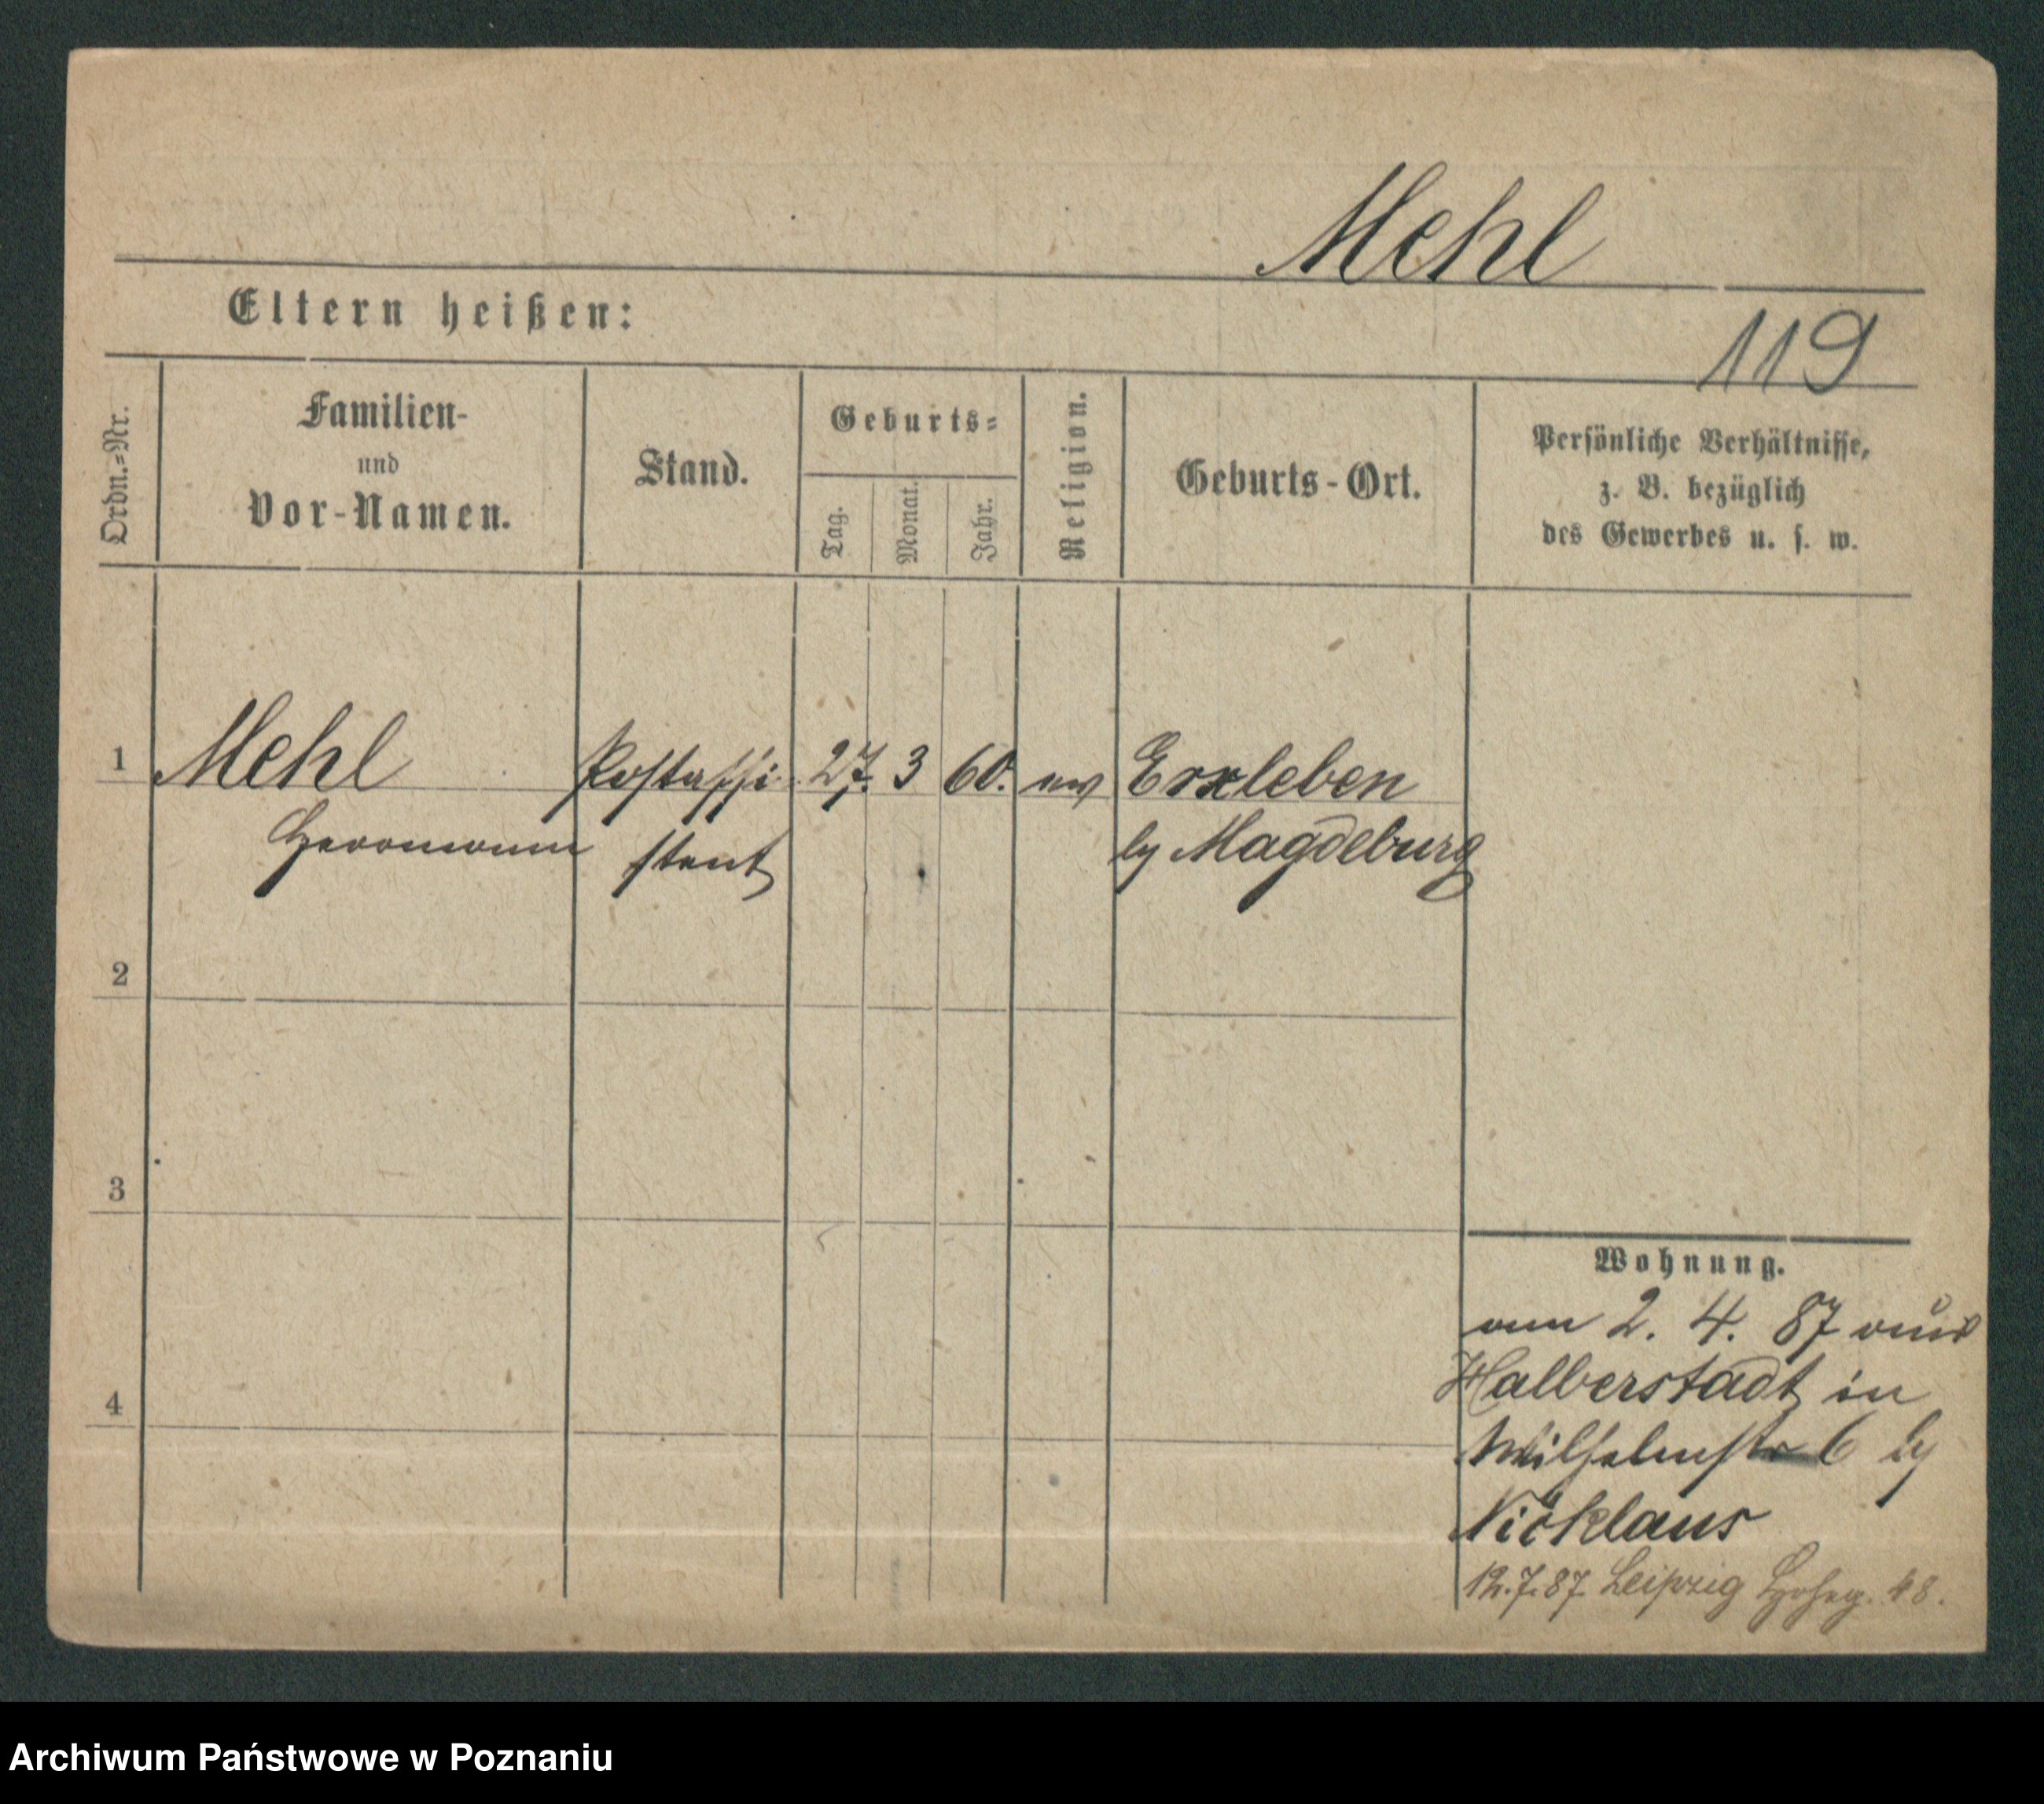 Mehl
Eltern heißen:
119
Ordn.=Nr.
Familien-
und
Vor-Namen.
Stand.
Geburts=
Tag.
Monat.
Jahr.
Religion.
Geburts-Ort.
Persönliche Verhältnisse,
z. B. bezüglich
des Gewerbes u. s. w.
1 Mehl Postassi 27. 3 60. ev Erxleben
Herrmann stent by Magdeburg
2
3
4
Wohnung.
vom 2. 4. 87 aus
Halberstadt in
Wilhelmstr 6 by
Nicklaus
12.7.87. Leipzig 48.
Archiwum Państwowe w Poznaniu